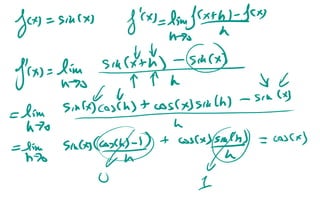 f(x) = sin(x) f'(x) = lim h→0 f(x+h) - f(x) / h
f'(x) = lim h→0 sin(x+h) - sin(x) / h
= lim h→0 sin(x)cos(h) + cos(x)sin(h) - sin(x) / h
= lim h→0 sin(x) (cos(h)-1) / h + cos(x) sin(h) / h = cos(x)
0 1